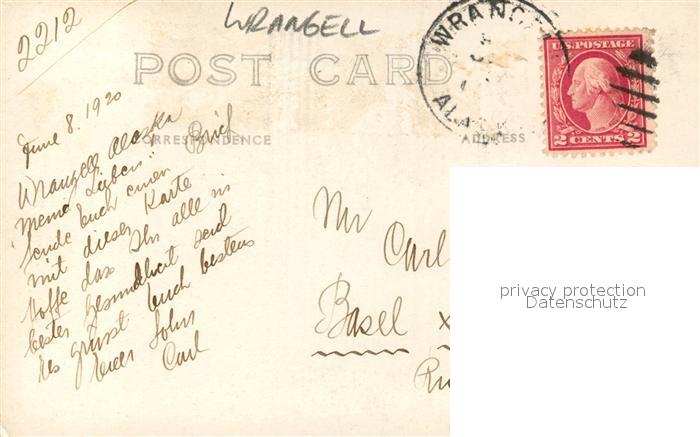 2212
WRANGELL
WRANG
ALAS
U.S. POSTAGE
2 CENTS 2
POST CARD
CORRESPONDENCE
ADDRESS
June 8. 1920
Wrangell Alaska
Meine Lieben, Brief
sende Euch einen
mit dieser Karte
hoffe das Ihr alle in
bester Gesundheit seid
Es grüsst Euch bestens
Euer Sohn
Carl
Mr
Carl
Basel
privacy protection
Datenschutz